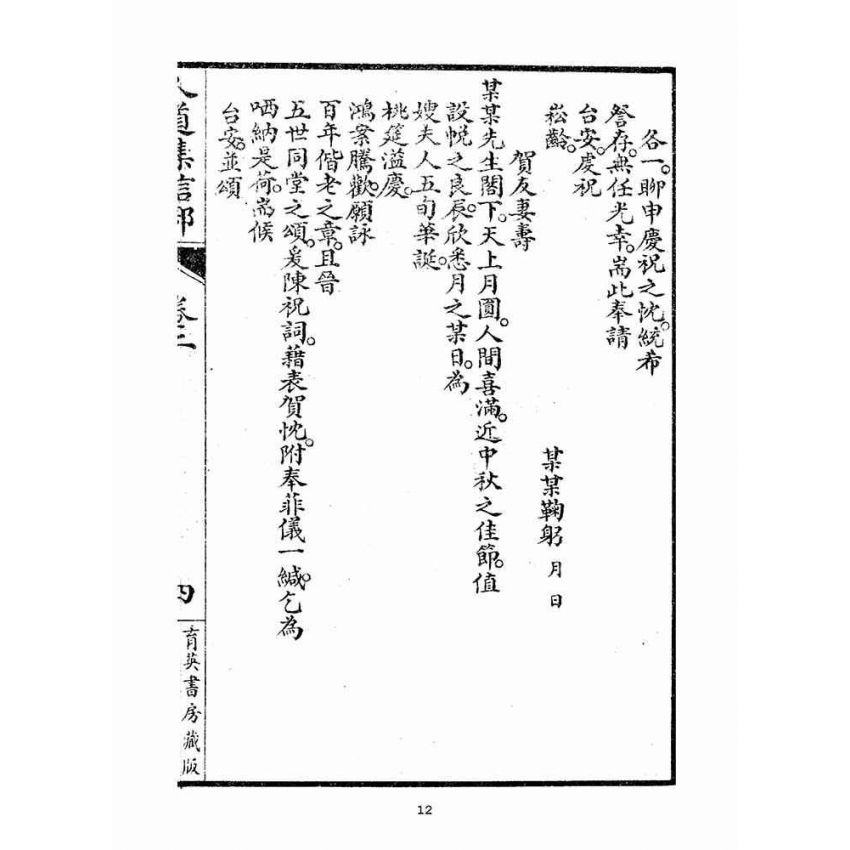 各一。聊申慶祝之忱。統希
詧存。無任光幸。耑此奉請
台安。虔祝
崧齡。
某某鞠躬 月 日
賀友妻壽
某某先生閣下。天上月圓。人間喜滿。近中秋之佳節。值
設帨之良辰。欣悉月之某日。為
嫂夫人五旬華誕。
桃筵溢慶。
鴻案騰歡。願詠
百年偕老之章。且晉
五世同堂之頌。爰陳祝詞。藉表賀忱。附奉菲儀一緘。乞為
哂納是荷。耑候
台安。並頌
道集信
卷二
四
育英書房藏版
12